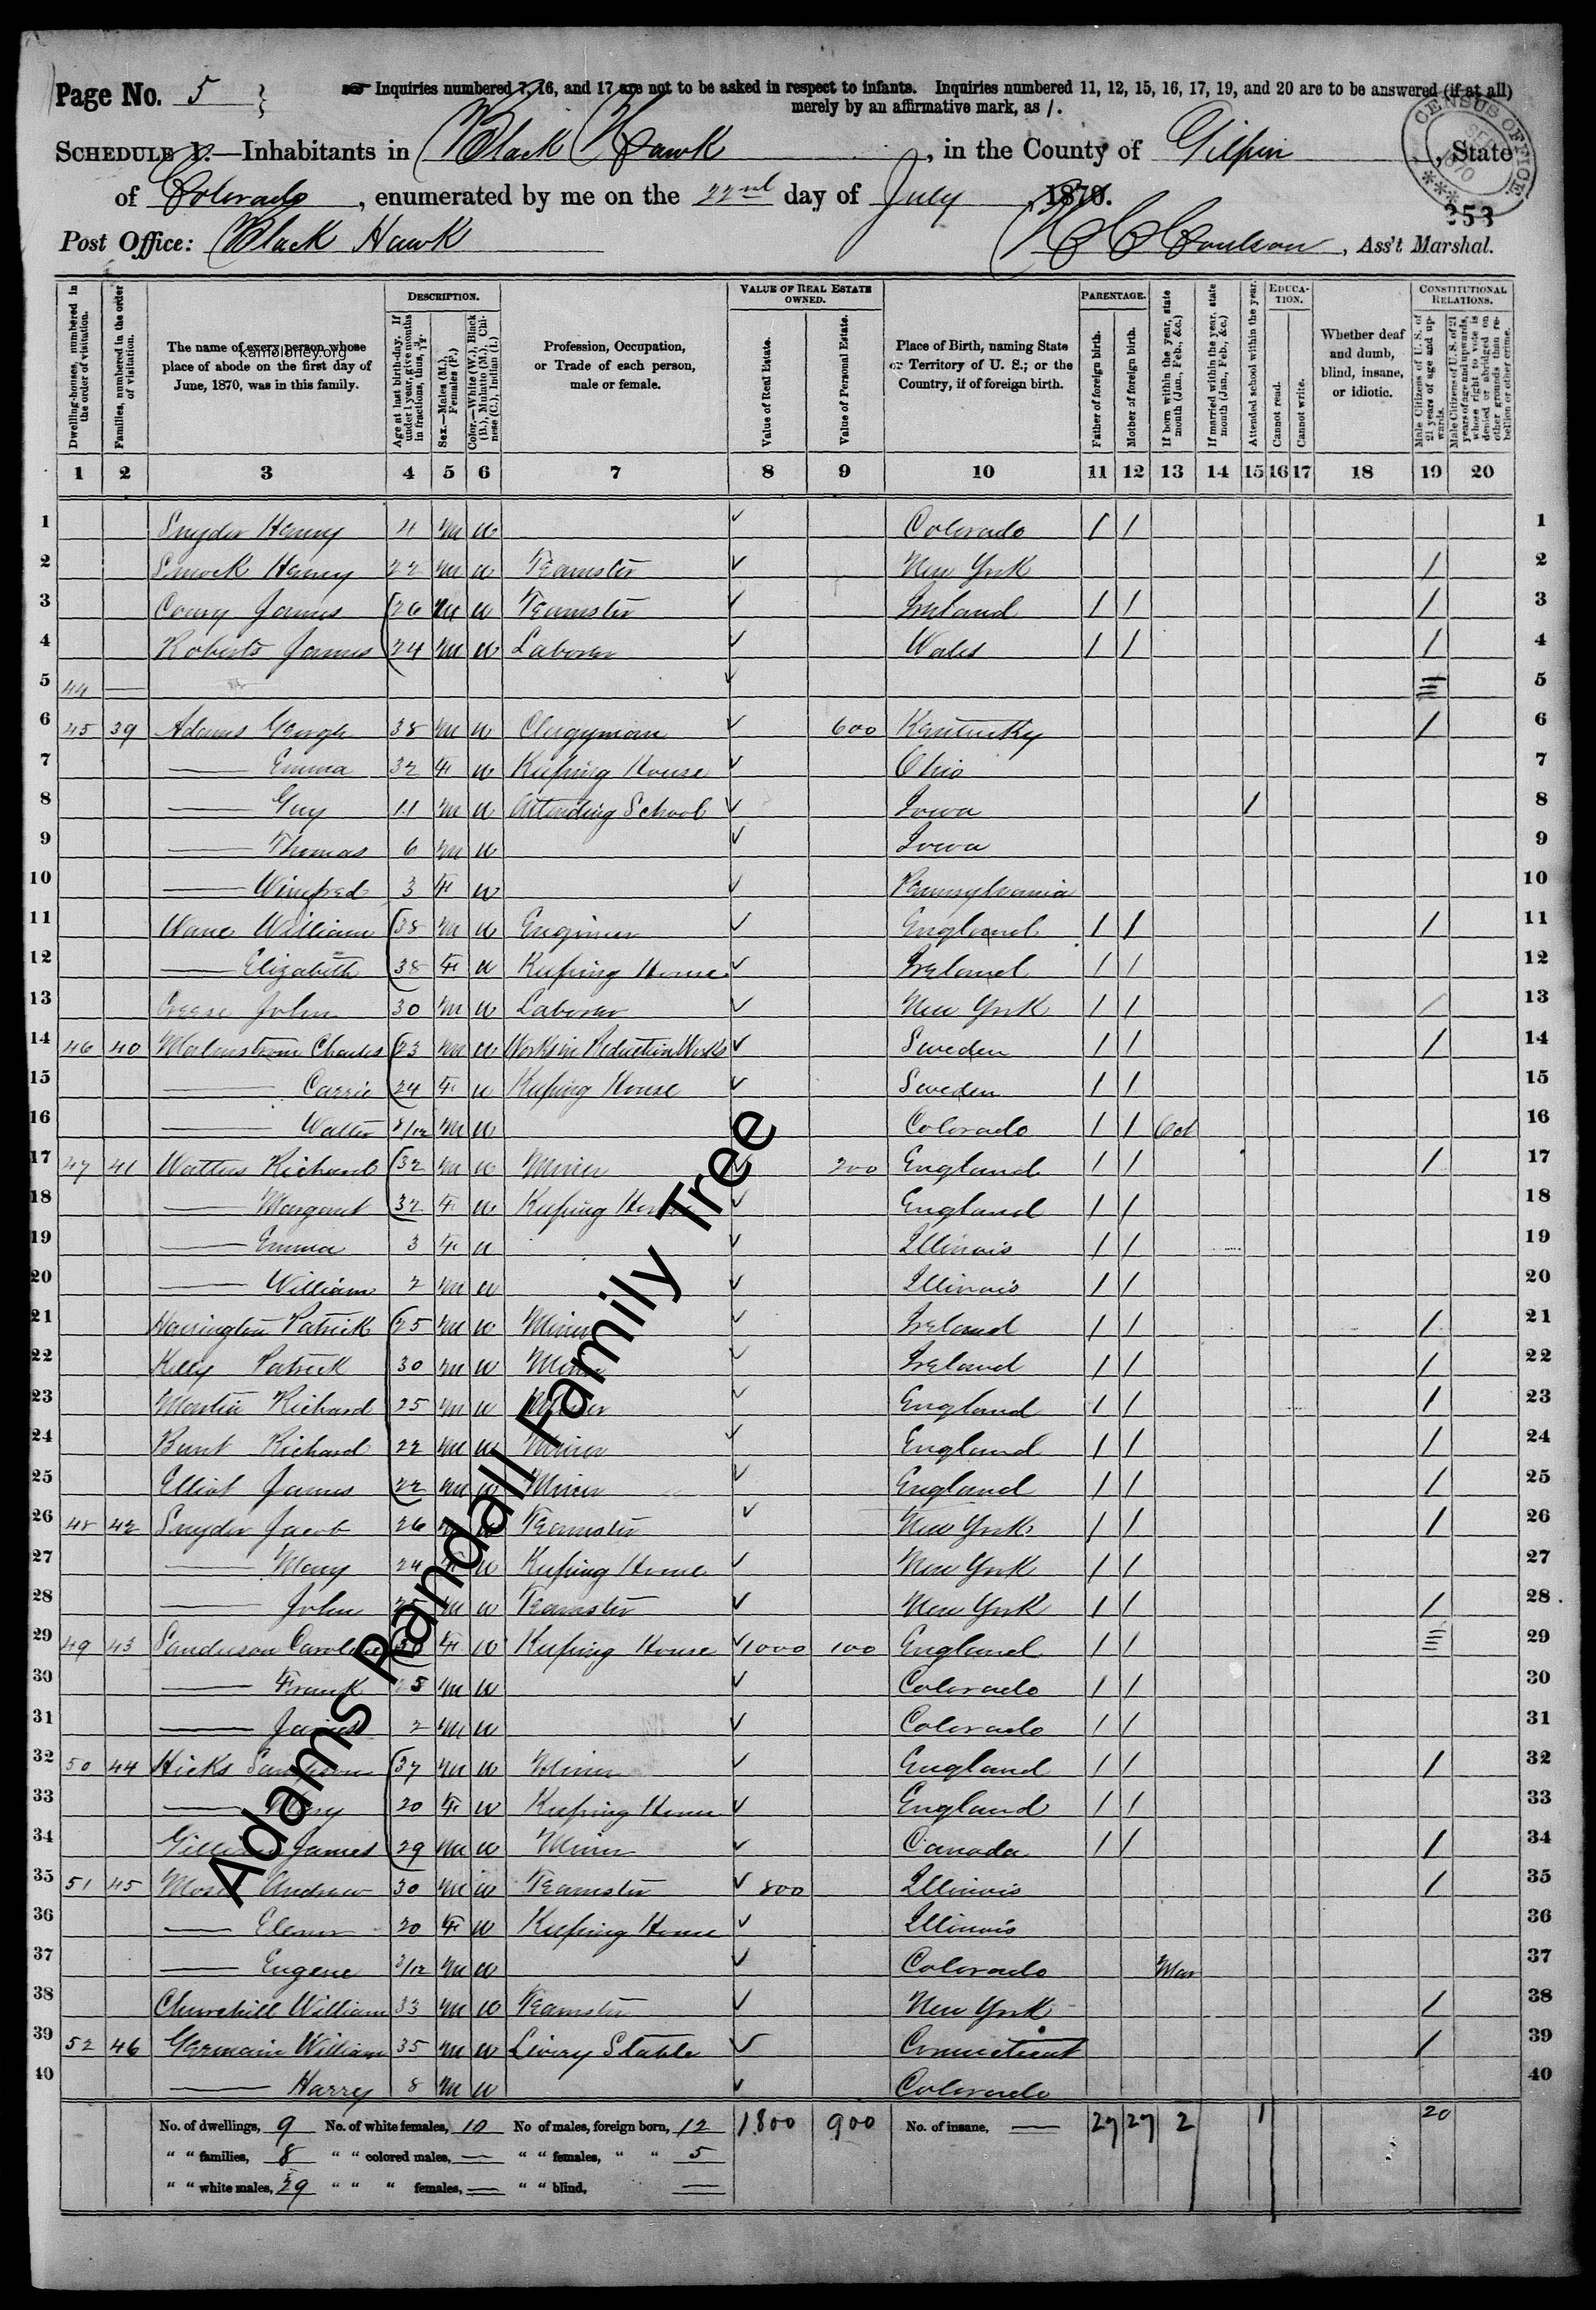 Page No. 5
Inquiries numbered 7, 16, and 17 are not to be asked in respect to infants. Inquiries numbered 11, 12, 15, 16, 17, 19, and 20 are to be answered (if at all)
merely by an affirmative mark, as /.
SCHEDULE 1.—Inhabitants in Black Hawk, in the County of Gilpin, State
of Colorado, enumerated by me on the 22nd day of July, 1870.
CENSUS OFFICE 1870
353
Post Office: Black Hawk
Coulson, Ass't Marshal.
Dwelling-houses, numbered in the order of visitation.
Families, numbered in the order of visitation.
The name of every person whose place of abode on the first day of June, 1870, was in this family.
kamoloney.org
DESCRIPTION.
Age at last birth-day. If under 1 year, give months in fractions, thus, 3/12.
Sex.—Males (M.), Females (F.)
Color.—White (W.), Black (B.), Mulatto (M.), Chinese (C.), Indian (I.)
Profession, Occupation, or Trade of each person, male or female.
VALUE OF REAL ESTATE OWNED.
Value of Real Estate.
Value of Personal Estate.
Place of Birth, naming State or Territory of U. S.; or the Country, if of foreign birth.
PARENTAGE.
Father of foreign birth.
Mother of foreign birth.
If born within the year, state month (Jan., Feb., &c.)
If married within the year, state month (Jan., Feb., &c.)
Attended school within the year.
EDUCATION.
Cannot read.
Cannot write.
Whether deaf and dumb, blind, insane, or idiotic.
CONSTITUTIONAL RELATIONS.
Male Citizens of U. S. of 21 years of age and upwards.
Male Citizens of U. S. of 21 years of age and upwards, whose right to vote is denied or abridged on other grounds than rebellion or other crime.
1 2 3 4 5 6 7 8 9 10 11 12 13 14 15 16 17 18 19 20
1 Snyder Henry 4 M W Colorado / / 1
2 Smock Henry 22 M W Teamster New York / 2
3 James 26 M W Teamster Ireland / / / 3
4 Roberts James 24 M W Laborer Wales / / / 4
5 44 — 5
6 45 39 Adams George 38 M W Clergyman 600 Kentucky / 6
7 — Emma 32 F W Keeping House Ohio 7
8 — Guy 11 M W Attending School Iowa / 8
9 — Thomas 6 M W Iowa 9
10 — Winifred 3 F W Pennsylvania 10
11 William 38 M W Engineer England / / / 11
12 — Elizabeth 38 F W Keeping House Ireland / / 12
13 John 30 M W Laborer New York / / / 13
14 46 40 Malmstrom Charles 23 M W Works in Reduction Works Sweden / / / 14
15 — Carrie 24 F W Keeping House Sweden / / 15
16 — Walter 8/12 M W Colorado / / Oct 16
17 47 41 Watters Richard 32 M W Miner 200 England / / / 17
18 — Margaret 32 F W Keeping House England / / 18
19 — Emma 3 F W Illinois / / 19
20 — William 2 M W Illinois / / 20
21 Harrington Patrick 25 M W Miner Ireland / / / 21
22 Kelly Patrick 30 M W Miner Ireland / / / 22
23 Martin Richard 25 M W Miner England / / / 23
24 Bunt Richard 22 M W Miner England / / / 24
25 Elliot James 22 M W Miner England / / / 25
26 48 42 Snyder Jacob 26 M W Teamster New York / / / 26
27 — Mary 24 F W Keeping House New York / / 27
28 — John 25 M W Teamster New York / / / 28
29 49 43 Sanderson Caroline 30 F W Keeping House 1000 100 England / / 29
30 — Frank 5 M W Colorado / / 30
31 — James 2 M W Colorado / / 31
32 50 44 Hicks Sampson 37 M W Miner England / / / 32
33 — Mary 20 F W Keeping House England / / 33
34 James 29 M W Miner Canada / / / 34
35 51 45 Andrew 30 M W Teamster 800 Illinois / 35
36 — Elenor 20 F W Keeping House Illinois 36
37 — Eugene 3/12 M W Colorado Mar 37
38 Churchill William 33 M W Teamster New York / 38
39 52 46 Germain William 35 M W Livery Stable Connecticut / 39
40 — Harry 8 M W Colorado 40
No. of dwellings, 9 No. of white females, 10 No of males, foreign born, 12 1,800 900 No. of insane, — 27 27 2 1 20
" " families, 8 " " colored males, — " " females, " " 5
" " white males, 29 " " " females, — " " blind, —
Adams Randall Family Tree